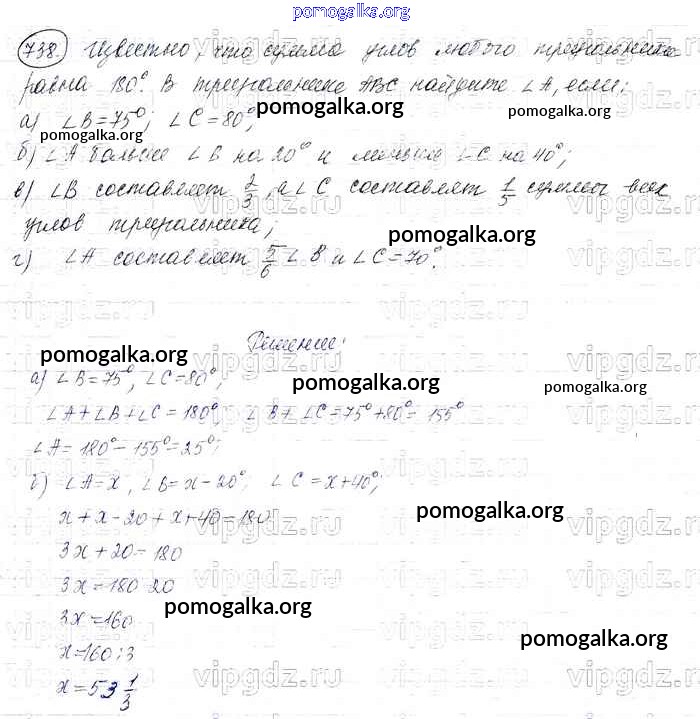 pomogalka.org
738. Известно, что сумма углов любого треугольника
равна 180°. В треугольнике ABC найдите ∠A, если:
pomogalka.org
pomogalka.org
а) ∠B=75°; ∠C=80°;
pomogalka.org
б) ∠A больше ∠B на 20° и меньше ∠C на 40°;
в) ∠B составляет 2/3, а ∠C составляет 1/5 суммы всех
углов треугольника;
pomogalka.org
г) ∠A составляет 5/6 ∠B и ∠C=70°.
vipgdz.ru
Решение:
pomogalka.org
pomogalka.org
pomogalka.org
а) ∠B=75°, ∠C=80°;
∠A+∠B+∠C=180°; ∠B+∠C=75°+80°=155°
∠A=180°-155°=25°;
б) ∠A=x, ∠B=x-20°, ∠C=x+40°;
x+x-20+x+40=180
pomogalka.org
3x+20=180
3x=180-20
pomogalka.org
3x=160
pomogalka.org
x=160:3
x=53 1/3